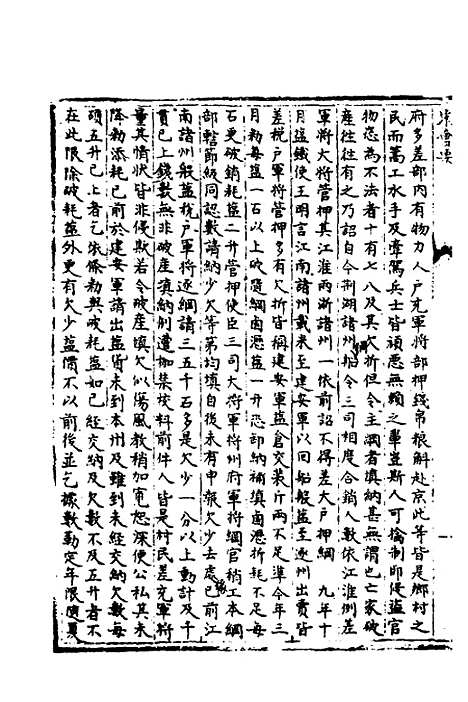 府多差部內有物力人戶充軍將部押錢帛粮斛赴京此等皆是鄉村之
民而篙工水手及牽駕兵士皆頑悪無頼之輩豈斯人可擒制邪侵盜官
物恣為不法者十有七八及其欠折但令主綱者填納甚無謂也亡家破
産往往有之乃詔自今荆湖諸州綱船令三司相度合銷人數依江淮例差
軍將大將管押其江淮兩浙諸州一依前詔不得差大戶押綱　九年十
月塩鐵使王明言江南諸州載米至建安軍以回船般塩至逐州出賣皆
差税戶軍將管押多有欠折皆稱建安軍塩倉交裝斤兩不足準今年三
月勑每塩一石以上破隨綱鹵慿塩一升恐部納補填鹵慿折耗不足每
石更破銷耗塩二升管押使臣三司大將軍將州府軍將綱官稍工本綱
部轄節級同認數請納少欠等第均填自後未有申報欠少去處已前江
南諸州般塩稅戶軍將逐綱請三五千石多是欠少一分以上動計及千
貫已上錢數無非破産填納刑遣枷禁校料前件人皆是村民差充軍將
量其情狀皆非侵欺若令破産填欠似傷風教稍加寛恕深便公私其未
降勑添耗已前於建安軍請出塩貨未到本州及雖到未經交納欠數每
碩五升已上者乞依條勑與破耗塩如已經交納及欠數不及五升者不
在此限除破耗塩外更有欠少塩價不以前後並乞據數勒定年限随夏